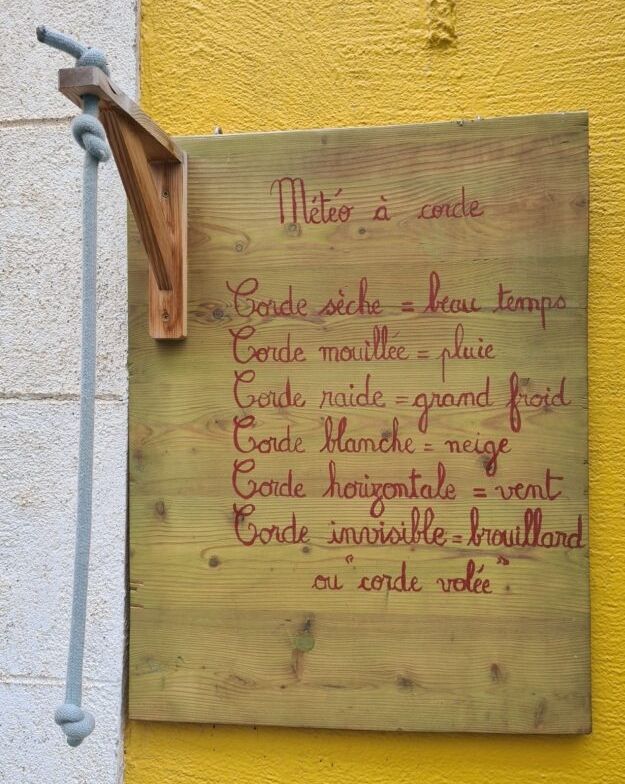 Météo à corde
Corde sèche = beau temps
Corde mouillée = pluie
Corde raide = grand froid
Corde blanche = neige
Corde horizontale = vent
Corde invisible = brouillard
ou "corde volée"